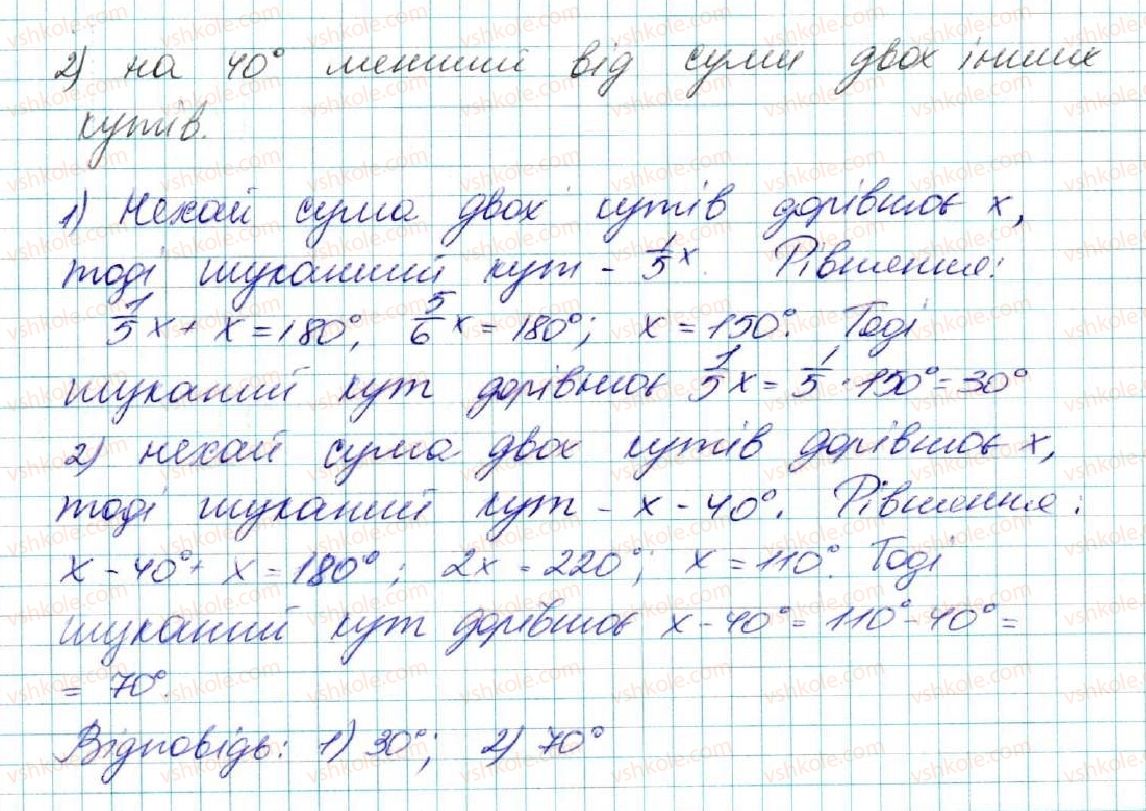 2) на 40° менший від суми двох інших
кутів.
1) Нехай сума двох кутів дорівнює x,
тоді шуканий кут - 1/5 x. Рівняння:
1/5 x + x = 180°, 5/6 x = 180°; x = 150°. Тоді
шуканий кут дорівнює 1/5 x = 1/5 · 150° = 30°
2) нехай сума двох кутів дорівнює x,
тоді шуканий кут - x - 40°. Рівняння:
x - 40° + x = 180°; 2x = 220°; x = 110°. Тоді
шуканий кут дорівнює x - 40° = 110° - 40° =
= 70°.
Відповідь: 1) 30°; 2) 70°